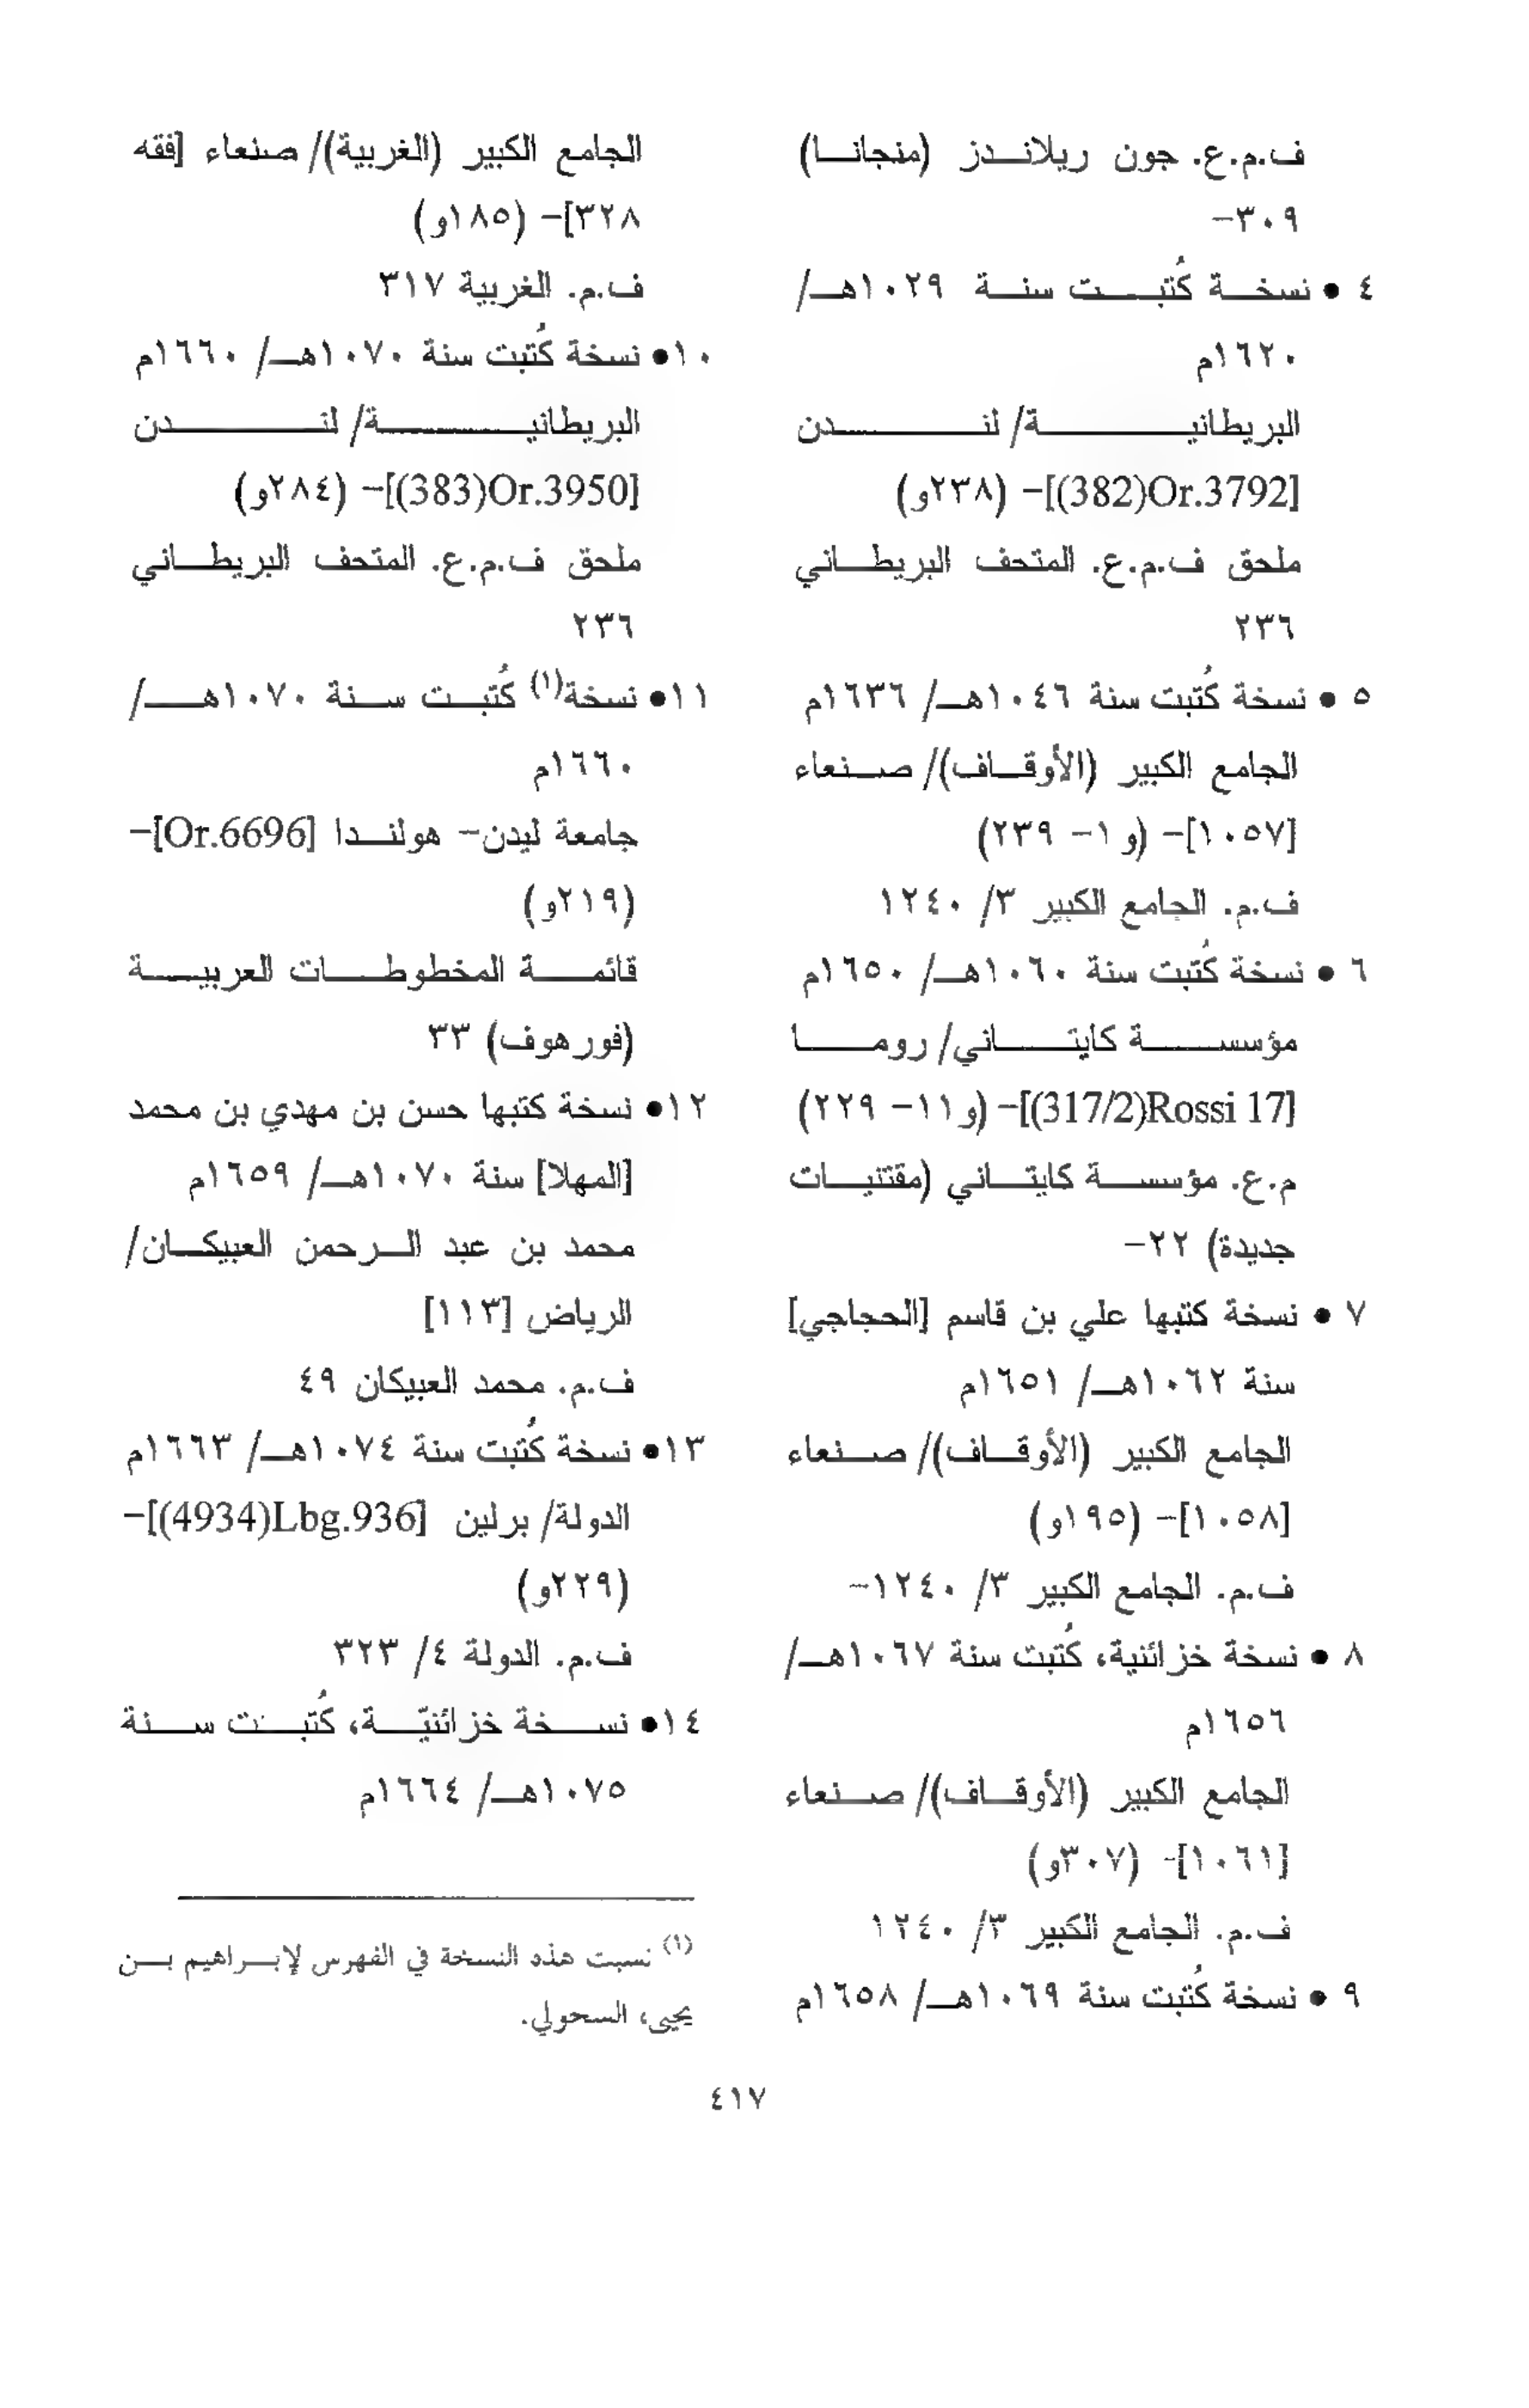 ف.م.ع. جون ريلاندز (منجانا)
٣٠٩-
٤ • نسخة كُتبت سنة ١٠٢٩هـ/
١٦٢٠م
البريطانية/ لندن
[Or.3792(382)]- (٢٣٨و)
ملحق ف.م.ع. المتحف البريطاني
٢٣٦
٥ • نسخة كُتبت سنة ١٠٤٦هـ/ ١٦٣٦م
الجامع الكبير (الأوقاف)/ صنعاء
[١٠٥٧]- (و ١- ٢٣٩)
ف.م. الجامع الكبير ٣/ ١٢٤٠
٦ • نسخة كُتبت سنة ١٠٦٠هـ/ ١٦٥٠م
مؤسسة كايتاني/ روما
[Rossi 17(317/2)]- (و ١١- ٢٢٩)
م.ع. مؤسسة كايتاني (مقتنيات
جديدة) ٢٢-
٧ • نسخة كتبها علي بن قاسم [الحجاجي]
سنة ١٠٦٢هـ/ ١٦٥١م
الجامع الكبير (الأوقاف)/ صنعاء
[١٠٥٨]- (١٩٥و)
ف.م. الجامع الكبير ٣/ ١٢٤٠-
٨ • نسخة خزائنية، كُتبت سنة ١٠٦٧هـ/
١٦٥٦م
الجامع الكبير (الأوقاف)/ صنعاء
[١٠٦١]- (٣٠٧و)
ف.م. الجامع الكبير ٣/ ١٢٤٠
٩ • نسخة كُتبت سنة ١٠٦٩هـ/ ١٦٥٨م
الجامع الكبير (الغربية)/ صنعاء [فقه
٣٢٨]- (١٨٥و)
ف.م. الغربية ٣١٧
١٠• نسخة كُتبت سنة ١٠٧٠هـ/ ١٦٦٠م
البريطانية/ لندن
[Or.3950(383)]- (٢٨٤و)
ملحق ف.م.ع. المتحف البريطاني
٢٣٦
١١• نسخة(١) كُتبت سنة ١٠٧٠هـ/
١٦٦٠م
جامعة ليدن- هولندا [Or.6696]-
(٢١٩و)
قائمة المخطوطات العربية
(فورهوف) ٣٣
١٢• نسخة كتبها حسن بن مهدي بن محمد
[المهلا] سنة ١٠٧٠هـ/ ١٦٥٩م
محمد بن عبد الرحمن العبيكان/
الرياض [١١٣]
ف.م. محمد العبيكان ٤٩
١٣• نسخة كُتبت سنة ١٠٧٤هـ/ ١٦٦٣م
الدولة/ برلين [Lbg.936(4934)]-
(٢٢٩و)
ف.م. الدولة ٤/ ٣٢٣
١٤• نسخة خزائنيّة، كُتبت سنة
١٠٧٥هـ/ ١٦٦٤م
(١) نسبت هذه النسخة في الفهرس لإبراهيم بن
يحيى، السحولي.
٤١٧